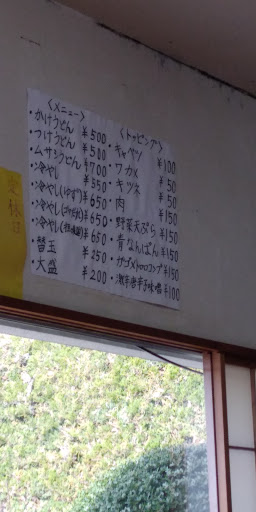 <メニュー>
・かけうどん ¥500
・つけうどん ¥500
・ムサシうどん ¥700
・冷やし ¥550
・冷やし(ゆず) ¥650
・冷やし(ごまだれ) ¥650
・冷やし ¥650
・替玉 ¥250
・大盛 ¥200
<トッピング>
・キャベツ ¥100
・ワカメ ¥50
・キツネ ¥50
・肉 ¥150
・野菜天ぷら ¥150
・青なんばん ¥150
・ガゴメトロロコンブ ¥150
・激辛唐辛子味噌 ¥100
定休日